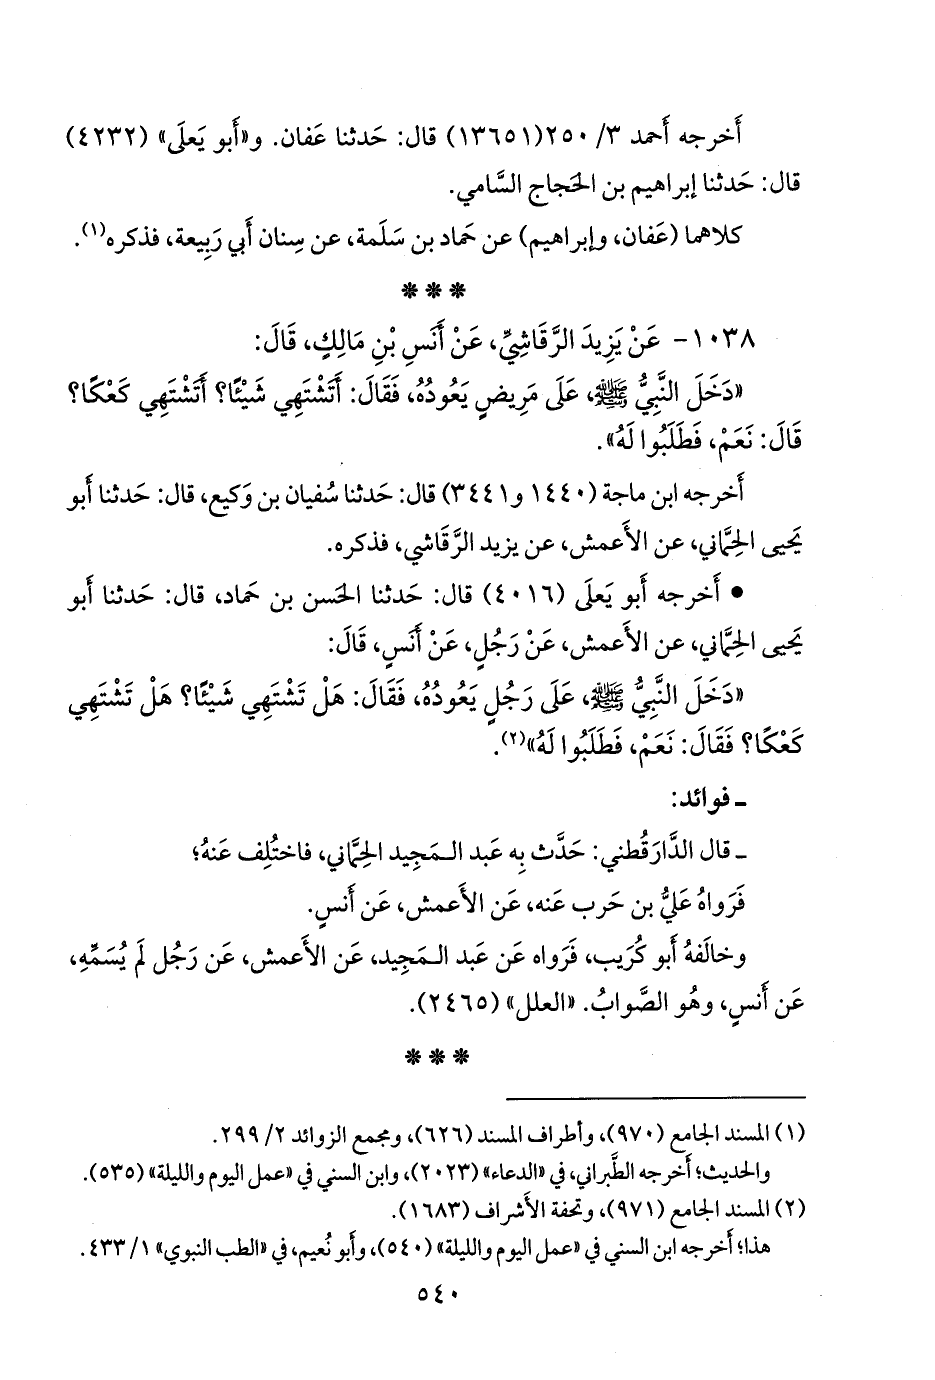 أَخرجه أَحمد ٣/ ٢٥٠(١٣٦٥١) قال: حَدثنا عَفان. و«أَبو يَعلَى» (٤٢٣٢)
قال: حَدثنا إبراهيم بن الحَجاج السَّامي.
كلاهما (عَفان، وإبراهيم) عن حَماد بن سَلَمة، عن سِنان أَبي رَبِيعة، فذكره(١).
* * *
١٠٣٨- عَنْ يَزِيدَ الرَّقَاشِيِّ، عَنْ أَنَسِ بْنِ مَالِكٍ، قَالَ:
«دَخَلَ النَّبِيُّ ﷺ، عَلَى مَرِيضٍ يَعُودُهُ، فَقَالَ: أَتَشْتَهِي شَيْئًا؟ أَتَشْتَهِي كَعْكًا؟
قَالَ: نَعَمْ، فَطَلَبُوا لَهُ».
أَخرجه ابن ماجة (١٤٤٠ و٣٤٤١) قال: حَدثنا سُفيان بن وَكيع، قال: حَدثنا أَبو
يَحيى الحِمَّاني، عن الأَعمش، عن يزيد الرَّقَاشي، فذكره.
• أَخرجه أَبو يَعلَى (٤٠١٦) قال: حَدثنا الحَسن بن حَماد، قال: حَدثنا أَبو
يَحيى الحِمَّاني، عن الأَعمش، عَنْ رَجُلٍ، عَنْ أَنَسٍ، قَالَ:
«دَخَلَ النَّبِيُّ ﷺ، عَلَى رَجُلٍ يَعُودُهُ، فَقَالَ: هَلْ تَشْتَهِي شَيْئًا؟ هَلْ تَشْتَهِي
كَعْكًا؟ فَقَالَ: نَعَمْ، فَطَلَبُوا لَهُ»(٢).
ـ فوائد:
ـ قال الدَّارَقُطني: حَدَّث بِه عَبد الـمَجيد الحِمَّاني، فاختُلِف عَنهُ؛
فَرَواهُ عَليُّ بن حَرب عَنه، عَن الأَعمش، عَن أَنسٍ.
وخالَفهُ أَبو كُرَيب، فَرَواه عَن عَبد الـمَجيد، عَن الأَعمش، عَن رَجُل لَم يُسَمِّهِ،
عَن أَنسٍ، وهُو الصَّوابُ. «العلل» (٢٤٦٥).
* * *
(١) المسند الجامع (٩٧٠)، وأطراف المسند (٦٢٦)، ومجمع الزوائد ٢/ ٢٩٩.
والحديث؛ أخرجه الطَّبراني، في «الدعاء» (٢٠٢٣)، وابن السني في «عمل اليوم والليلة» (٥٣٥).
(٢) المسند الجامع (٩٧١)، وتحفة الأشراف (١٦٨٣).
هذا؛ أخرجه ابن السني في «عمل اليوم والليلة» (٥٤٠)، وأبو نُعيم، في «الطب النبوي» ١/ ٤٣٣.
٥٤٠